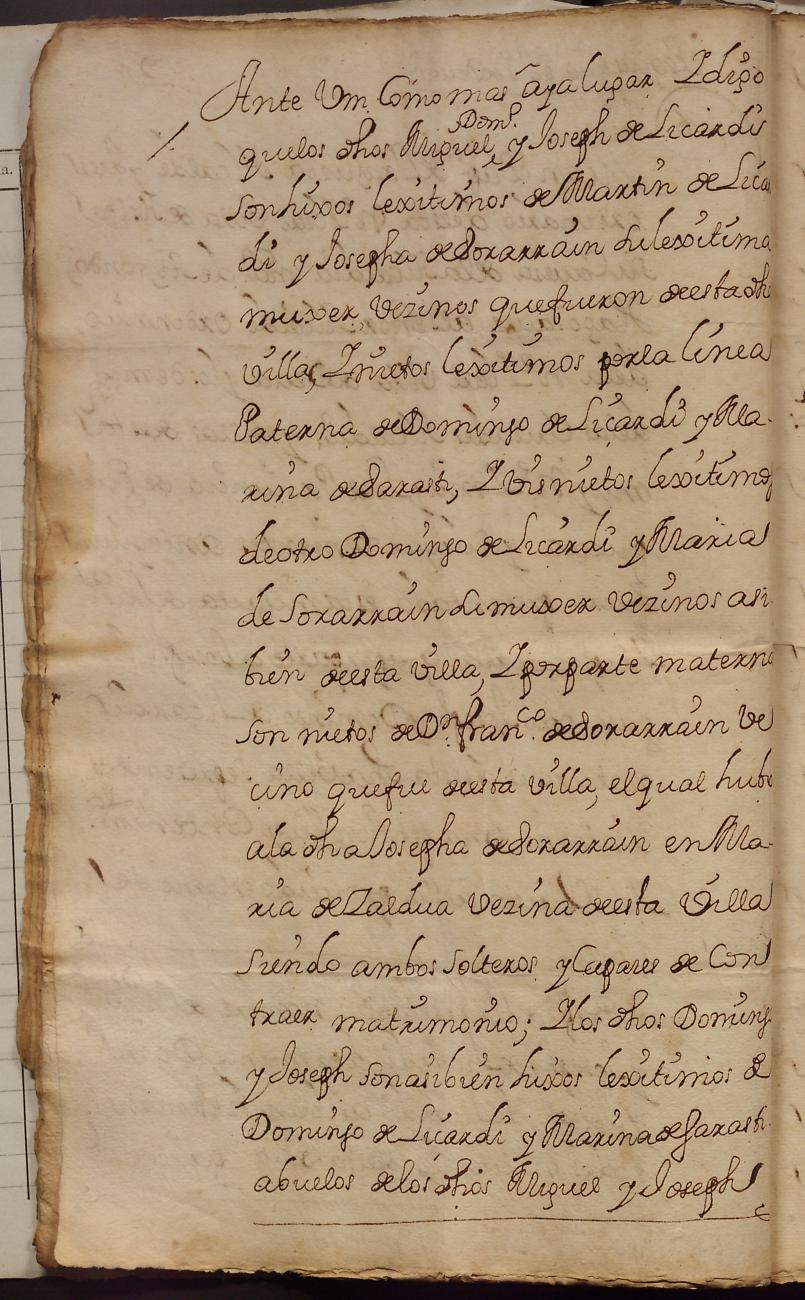 Ante Vm Como mas aya lugar Y digo
Domo.
que los dhos Miguel, y Joseph de Licardi
son hixos lexitimos de Martin de Lica
di y Josepha de Sorarrain su lexitima
muxer, vezinos que fueron de esta dha
villa, Y nietos lexitimos por la linea
Paterna de Domingo de Licardi y Ma-
rina de Garasti, Y visnietos lexitimos
de otro Domingo de Licardi y Maria
de Sorarrain su muxer vezinos asi
bien de esta villa, Y por parte materna
son nietos de Dn. franco. de Sorarrain ve
cino que fue de esta villa, el qual hubo
a la dha Josepha de Sorarrain en Ma-
ria de Zaldua vezina de esta Villa
siendo ambos solteros y Capaces de Con
traer matrimonio; Y los dhos Doming
y Joseph son asi bien hixos lexitimos de
Domingo de Licardi y Marina de Garasti
abuelos de los dhos Miguel y Joseph